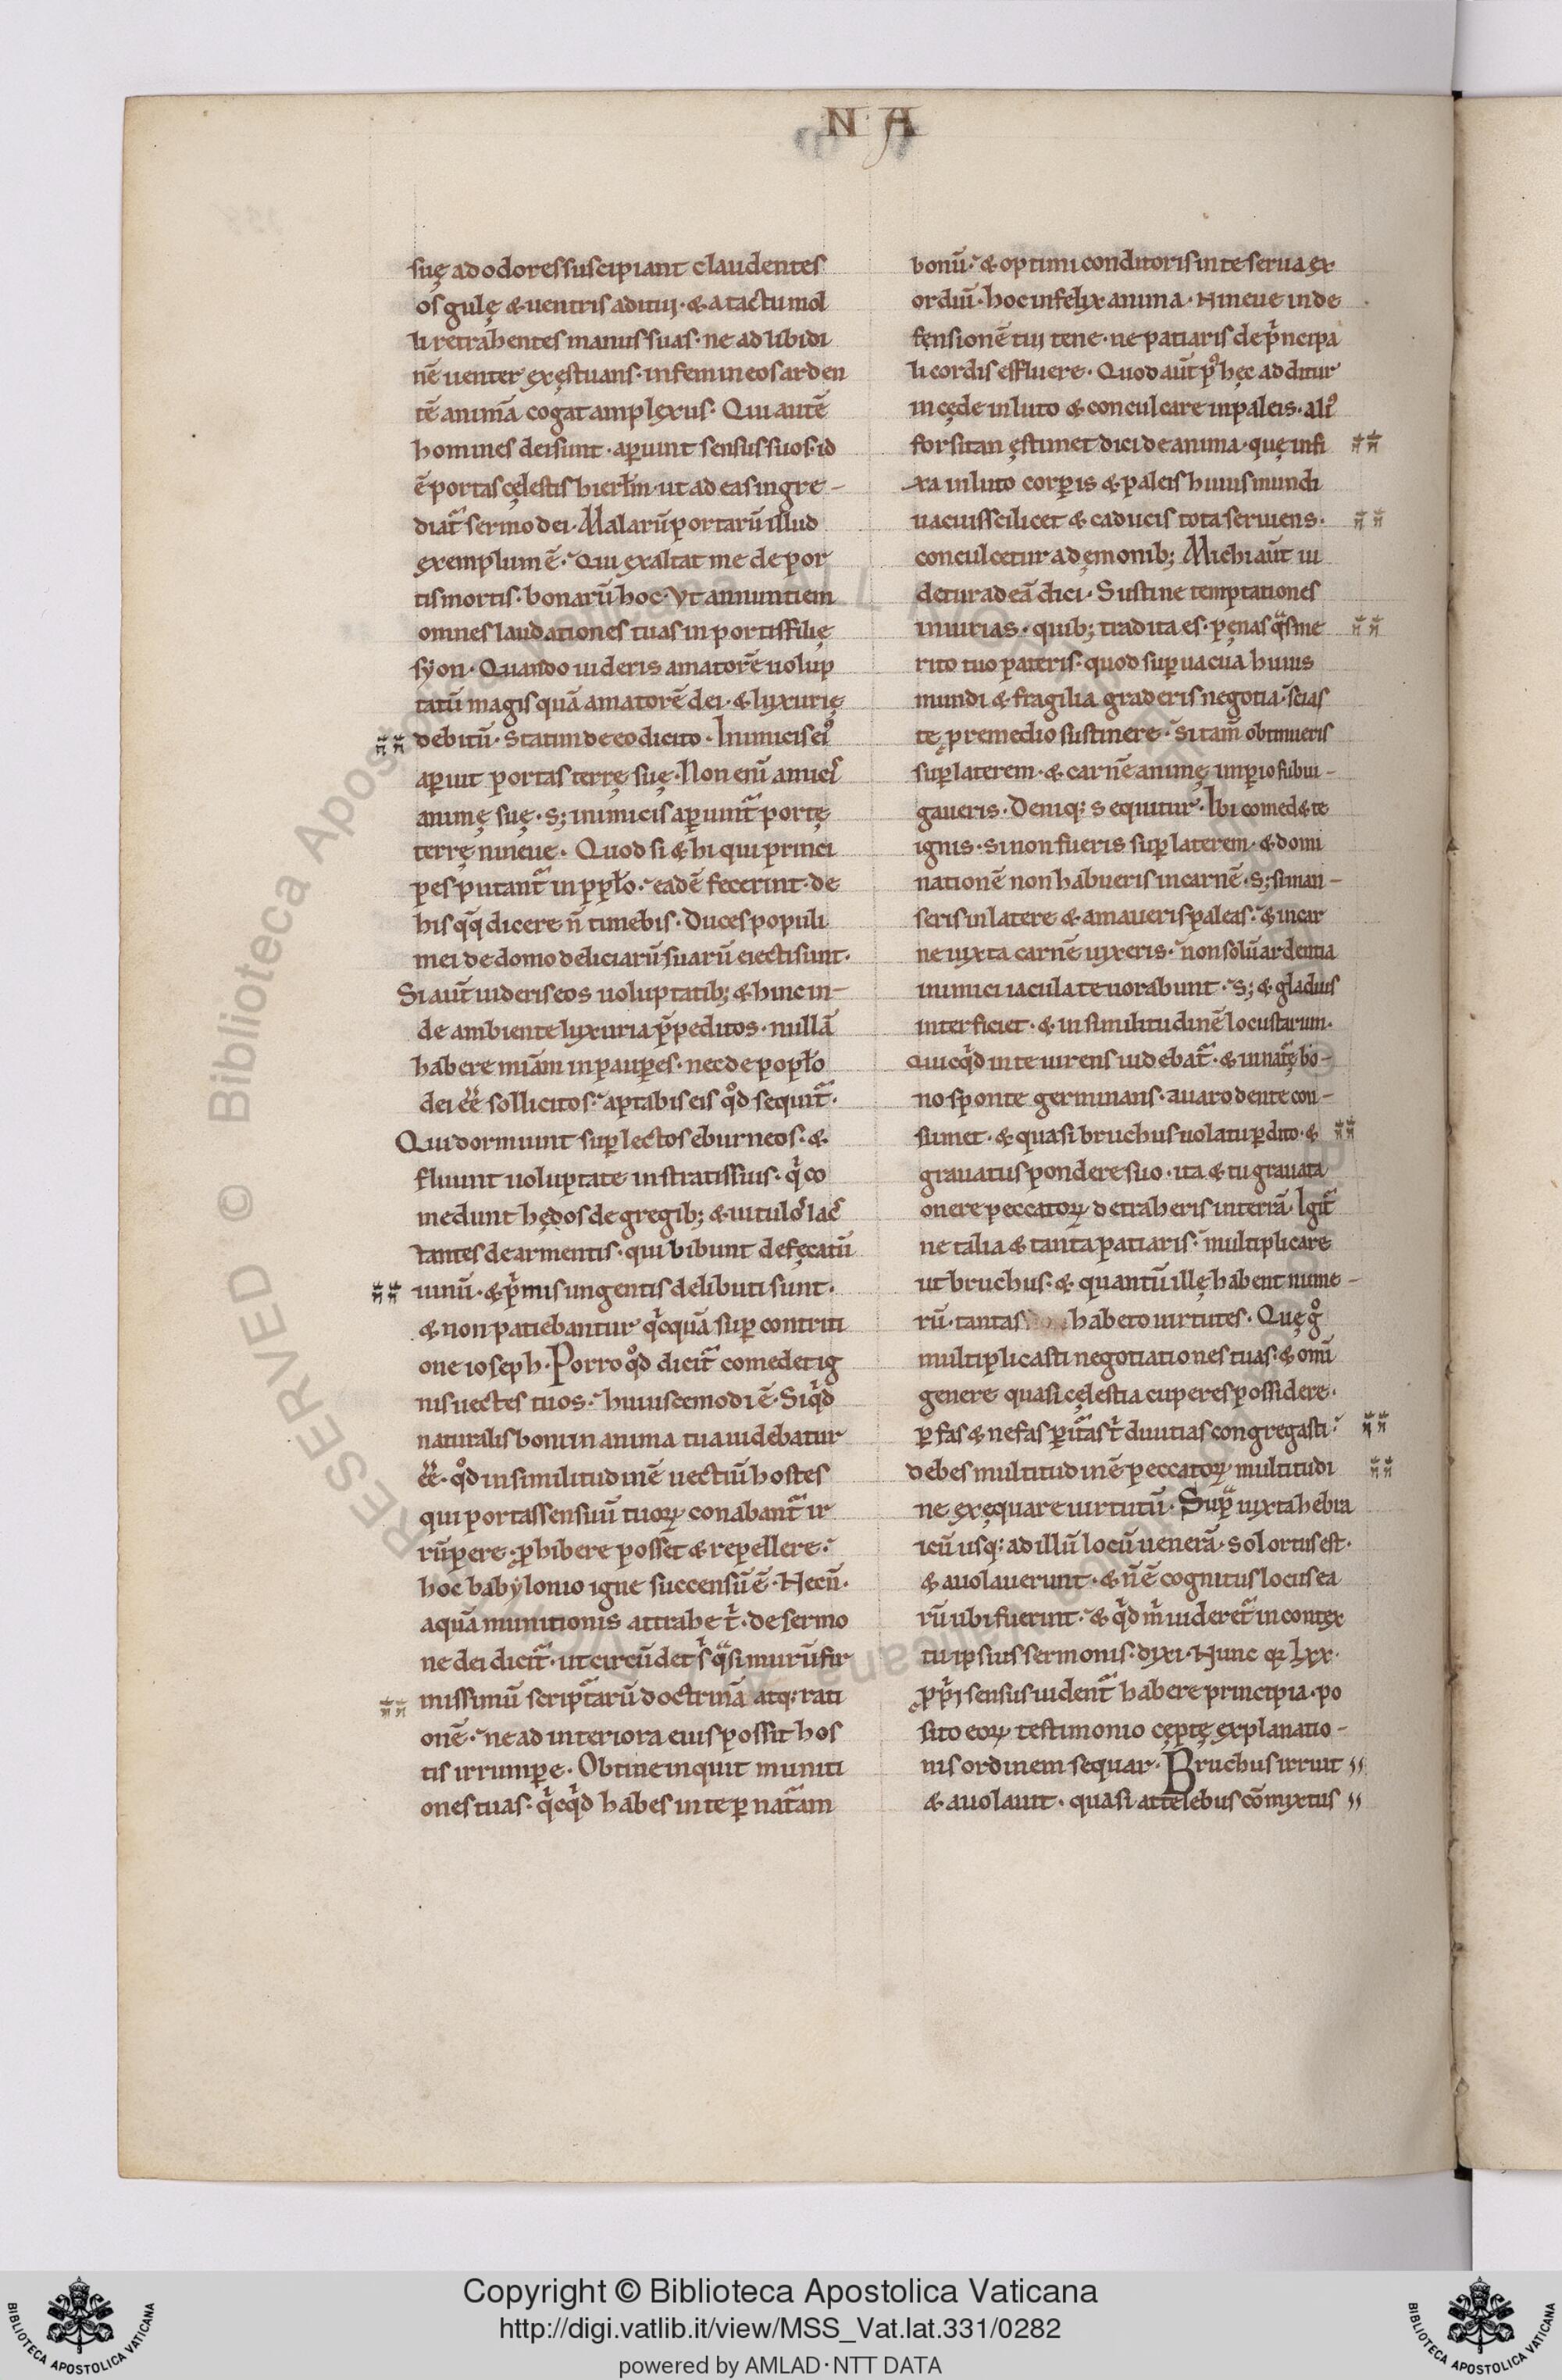 N A
suę ad odores suscipiant claudentes
os gulę & uentris aditui · & a tactu mol
li retrahentes manus suas · ne ad libidi
nē uenter exęstuans · in femineos arden
tē animā cogat amplexus · Qui autē
homines dei sunt · aꝑiunt sensus suos · id
ē portas cęlestis hierłm · ut ad eas ingre-
diat᷑ sermo dei · Malarū portarū illud
exemplum ē · Qui exaltat me de por
tis mortis · bonarū hoc · Vt annuntiem
omnes laudationes tuas in portis filię
syon · Quando uideris amatorē uolup
tatū magis quā amatorē dei · & luxurię
debitū · statim de eo dicito · Inimicis ei⁹
aꝑiuit portas terrę suę · Non enī amicis
animę suę · s; inimicis aꝑiunt᷑ portę
terrę nineue · Quod si & hi qui princi
pes putant᷑ in ppło · eadē fecerint · de
his qq̄ dicere n̄ timebis · Duces populi
mei de domo deliciarū suarū eiecti sunt ·
Si aut̄ uideris eos uoluptatib; & hinc in-
de ambiente luxuria p̄peditos · nullā
habere miam in pauꝑes · nec de popło
dei ēē sollicitos · aptabis eis qd̊ sequit᷑ ·
Qui dormiunt suꝑ lectos eburneos · &
fluunt uoluptate in stratis suis · qi co
medunt hędos de gregib; & uitulos lac
tantes de armentis · qui bibunt defęcatū
uinū · & pimis ungentis delibuti sunt ·
& non patiebantur qicquā suꝑ contriti
one ioseph · Porro qd̊ dicit᷑ comedet ig
nis uectes tuos · huiuscemodi ē · Siqid
naturalis boni in anima tua uidebatur
ēē · qd̊ in similitudinē uectiū hostes
qui portas sensuū tuoꝝ conabant᷑ ir
rūpere · ꝓhibere posset & repellere ·
hoc babylonio igne succensū ē · Hecū ·
aquā munitionis attrahe ti · de sermo
ne dei dicit᷑ · ut circūdet si qasi murū fir
missimū scriptarū doctrinā atq; rati
onē · ne ad interiora eius possit hos
tis irrumꝑe · Obtine inquit muniti
ones tuas · qicqid habes in te ꝑ natam
bonū · & optimi conditoris in te serua ex
ordiū · hoc infelyx anima · Nineue in de
fensionē tui tene · ne patiaris de principa
li cordis effluere · Quod aut̄ p⁹ hęc additur
incęde in luto & conculcare in paleis · ali⁹
forsitan ęstimet dici de anima · quę infi
xa in luto corꝑis & paleis huius mundi
uacuis scilicet & caducis tota seruiens ·
conculcetur a dęmonib; Michi aut̄ ui
detur ad eā dici · Sustine temptationes
iniurias · quib; tradita es · pęnas qas me
rito tuo pateris · quod suꝑuacua huius
mundi & fragilia graderis negotia · scias
te ꝓ remedio sustinere · si tam̄ obtinueris
suꝑ laterem · & carnē animę imꝑio subiu-
gaueris · Deniq; sequitur · Ibi comed& te
ignis · si non fueris suꝑ laterem · & domi
nationē non habueris in carnē · s; si man-
seris in latere & amaueris paleas · & in car
ne iuxta carnē uixeris · non solū ardentia
inimici iacula te uorabunt · s; & gladius
interficiet · & in similitudinē locustarum ·
quicqid in te uirens uidebat᷑ · & in natę bo-
no sponte germinans · auaro dente con-
sumet · & quasi bruchus uolatu ꝑdito · &
grauatus pondere suo · ita & tu grauata
onere peccatoꝝ detraheris in terrā · Igit᷑
ne talia & tanta patiaris · multiplicare
ut bruchus · & quantū illę habent nume-
rū · tantas habeto uirtutes · Quę g⁰
multiplicasti negotiationes tuas · & omī
genere quasi cęlestia cuperes possidere ·
ꝑ fas & nefas ꝑ itas ti diuitias congregasti ·
debes multitudinē peccatoꝝ multitudi
ne exęquare uirtutū · Supa iuxta hebra
icū usq; ad illū locū uenerā · sol ortus est ·
& auolauerunt · & n̄ ē cognitus locus ea
rū ubi fuerint · & qid mi uideret᷑ in contex
tu ipsius sermonis · dixi · Nunc qa lxx ·
ꝓpij sensus uident᷑ habere principia · po
sito eoꝝ testimonio cęptę explanatio-
nis ordinem sequar · Bruchus irruit
& auolauit · quasi attelebus cōmixtus
Copyright © Biblioteca Apostolica Vaticana
http://digi.vatlib.it/view/MSS_Vat.lat.331/0282
powered by AMLAD · NTT DATA